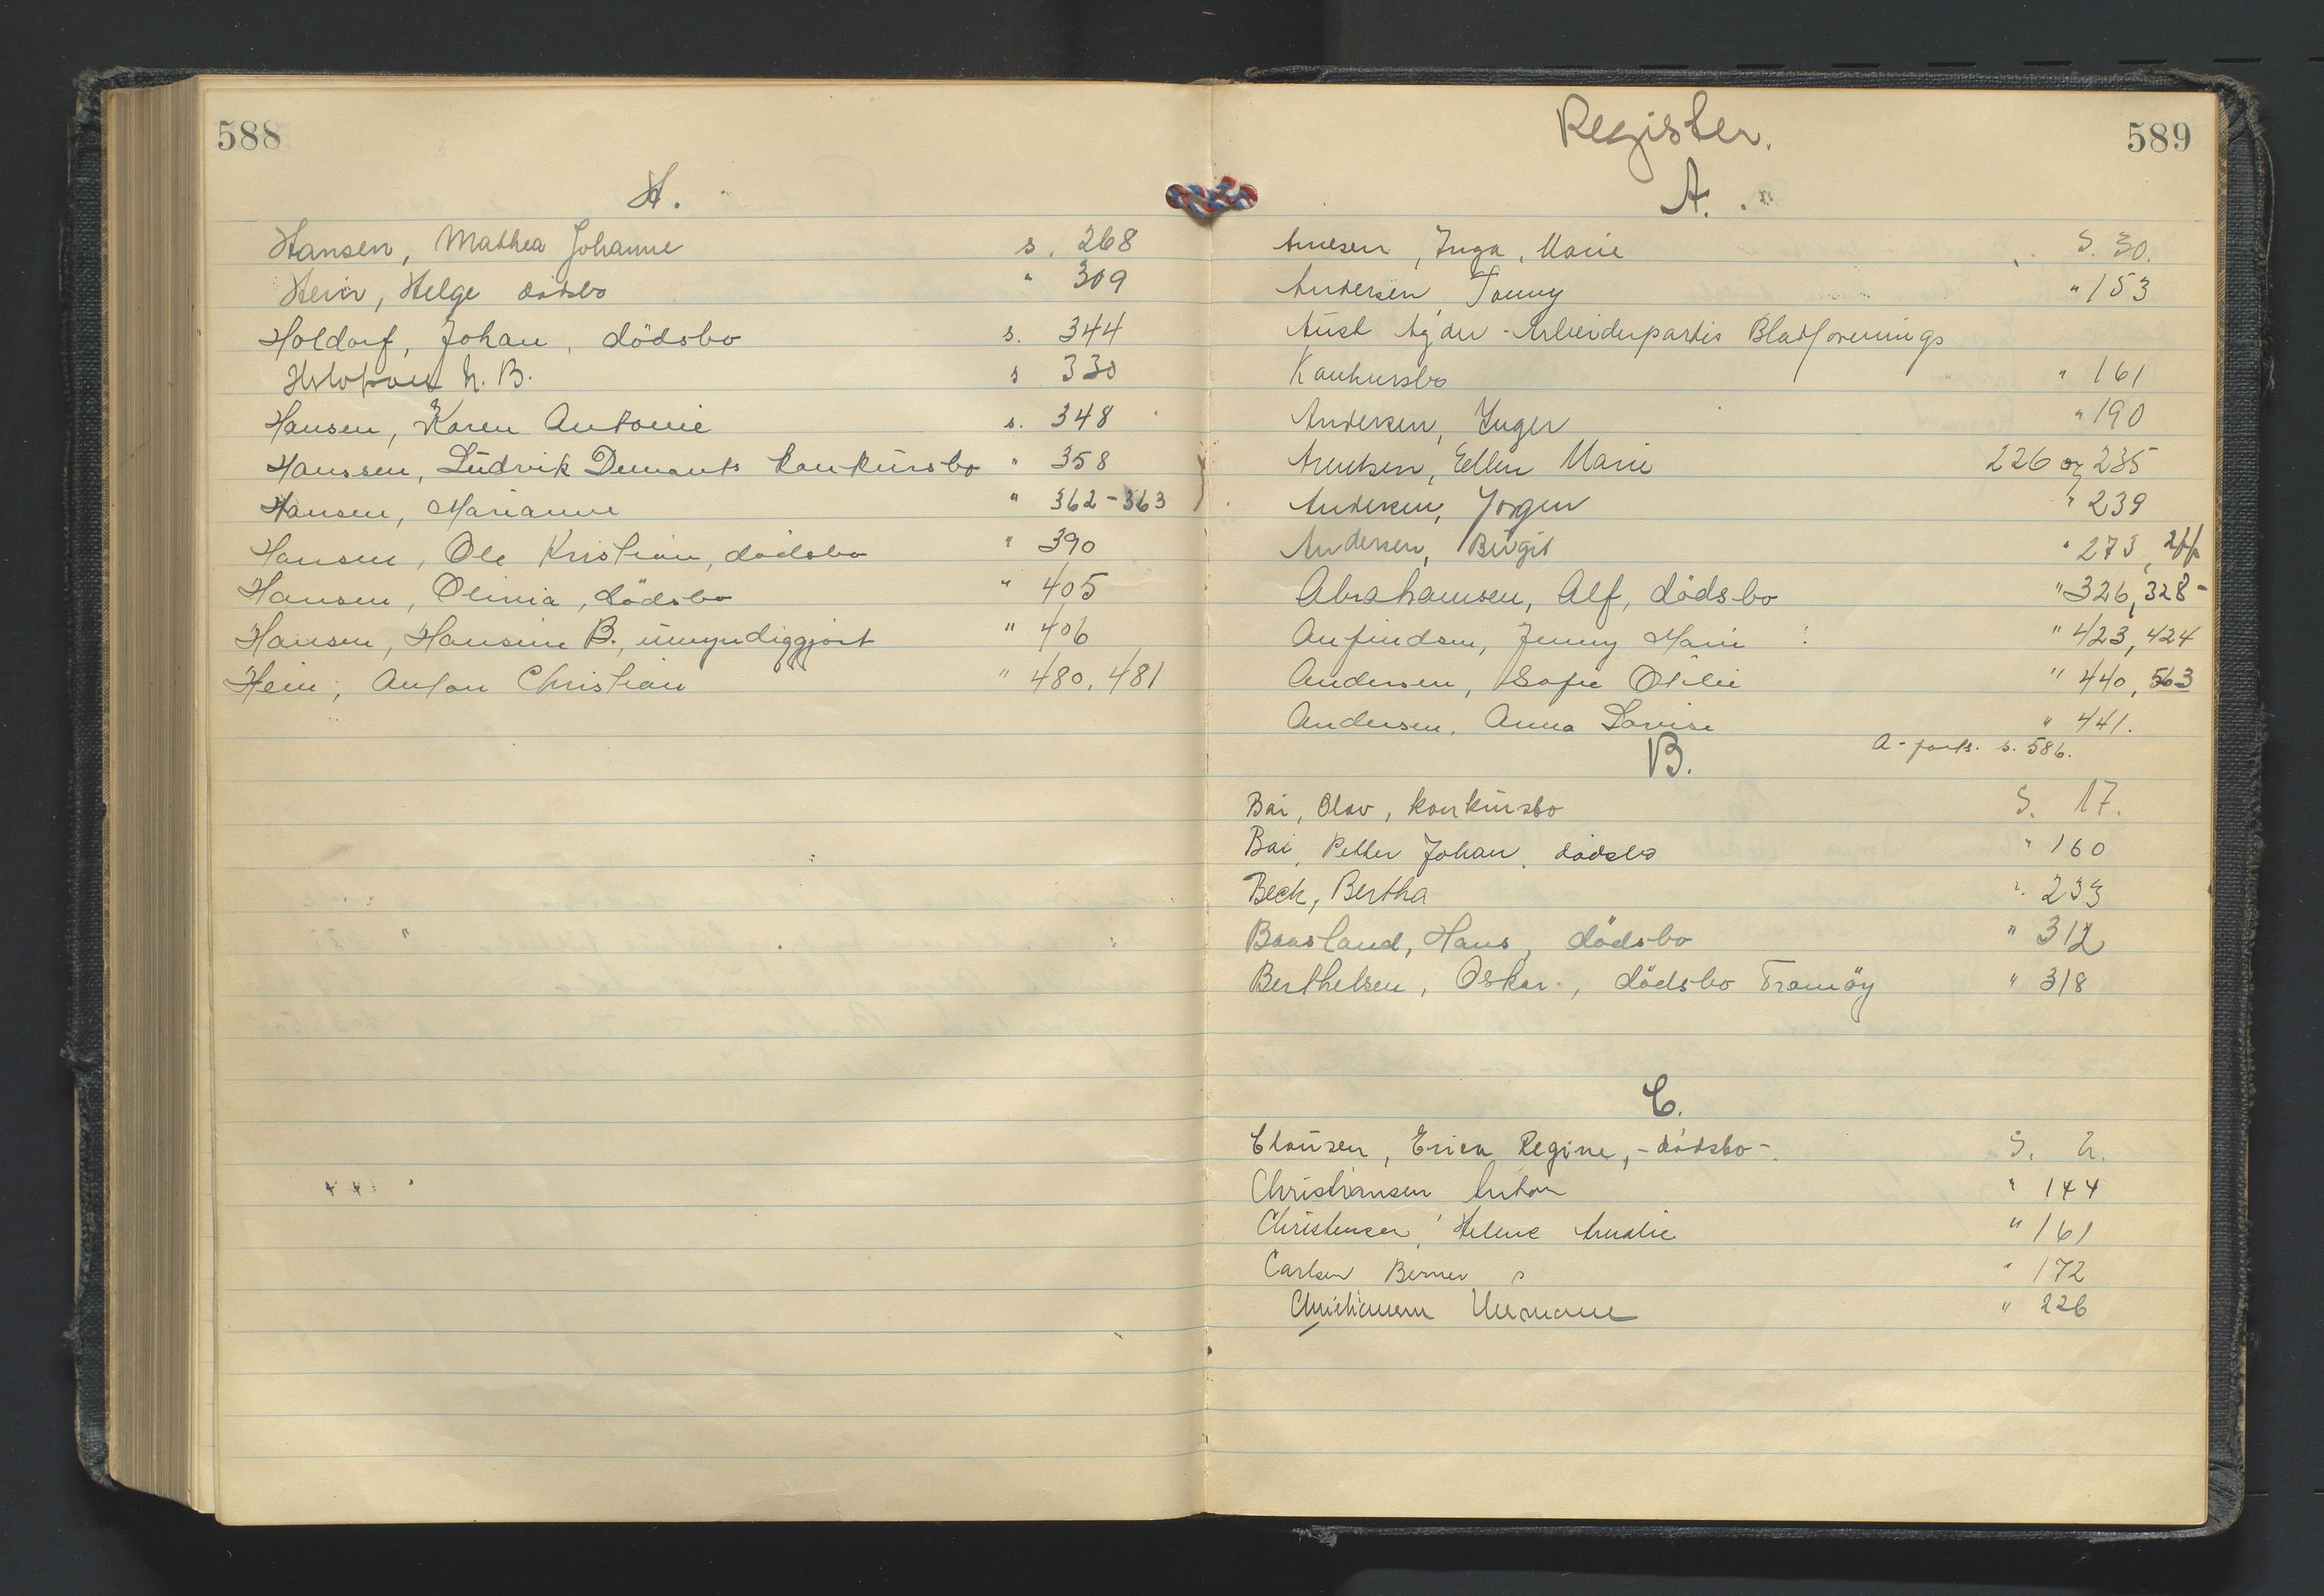 588
H.
Hansen, Mathea Johanne s. 268
Hein, Helge dödsbo " 309
Holdorf, Johan, dödsbo s. 344
H. B. s 330
Hansen, Karen Antonie s. 348
Hanssen, Ludvik Demants konkursbo " 358
Hansen, Marianne " 362-363
Hansen, Ole Kristian, dödsbo " 390
Hansen, Olivia, dödsbo " 405
Hansen, Hansine B., umyndiggjort " 406
Hein, Anton Christian " 480, 481
589
Register.
A.
Arnesen, Inga, Marie S. 30.
Andersen, Tonny " 153
Aust Agder-Arbeiderpartis Bladforenings
Konkursbo " 161
Andersen, Inger " 190
Arentsen, Ellen Marie 226 og 235
Andersen, Jörgen " 239
Andersen, Birgit " 273,
Abrahamsen, Alf, dödsbo " 326, 328-
Anfindsen, Jenny Marie " 423, 424
Andersen, Sofie Otilie " 440, 563
Andersen, Anna Lovise " 441.
A-forts. s. 586.
B.
Bai, Olav, konkursbo S. 17.
Bai, Petter Johan, dödsbo " 160
Beck, Bertha " 233
Baasland, Hans, dödsbo " 312
Berthelsen, Oskar., dödsbo Tromöy " 318
C.
Clausen, Erica Regine, -dödsbo- S. 2.
Christiansen Anton " 144
Christensen, Helene Amalie " 161
Carlsen Berner " 172
Christiansen " 226